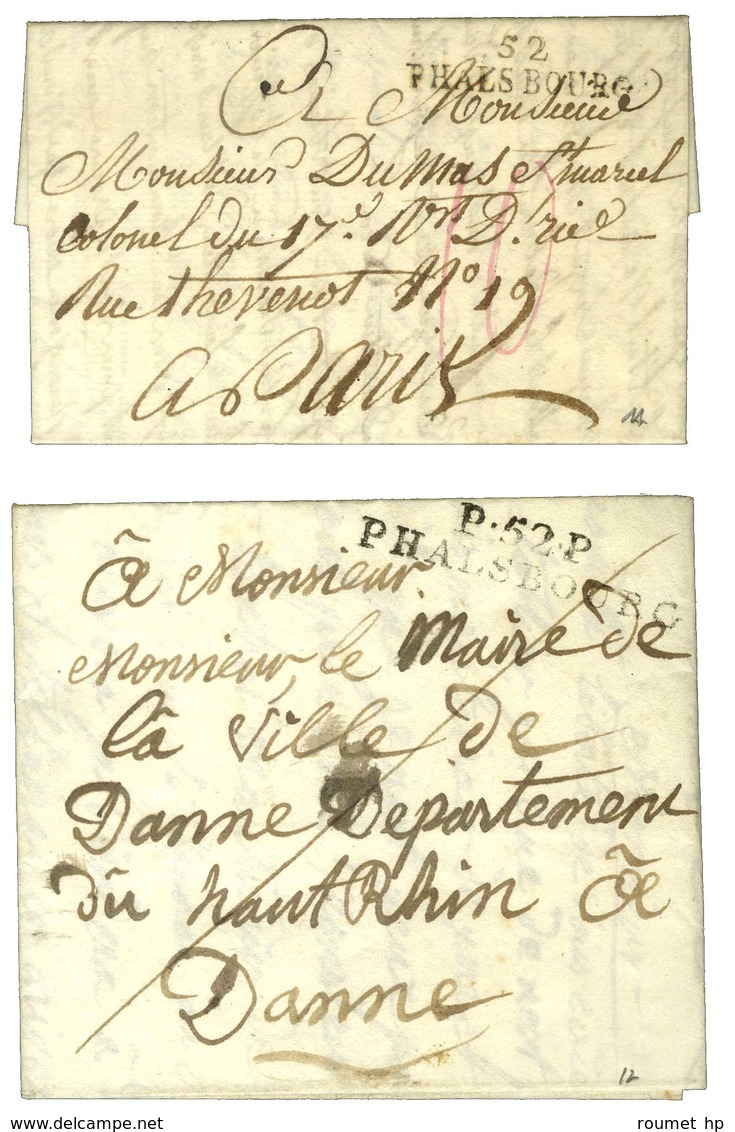 52
PHALSBOURG
A Monsieur
Monsieur Dumas St marcel
Colonel du 17e Rt D'rie
Rue thevenot No 19
a Paris
10
14
P.52.P
PHALSBOURG
â Monsieur
Monsieur, le Maire de
lâ ville de
Danne Departement
dû haut Rhin â
Danne
12
roumet hp